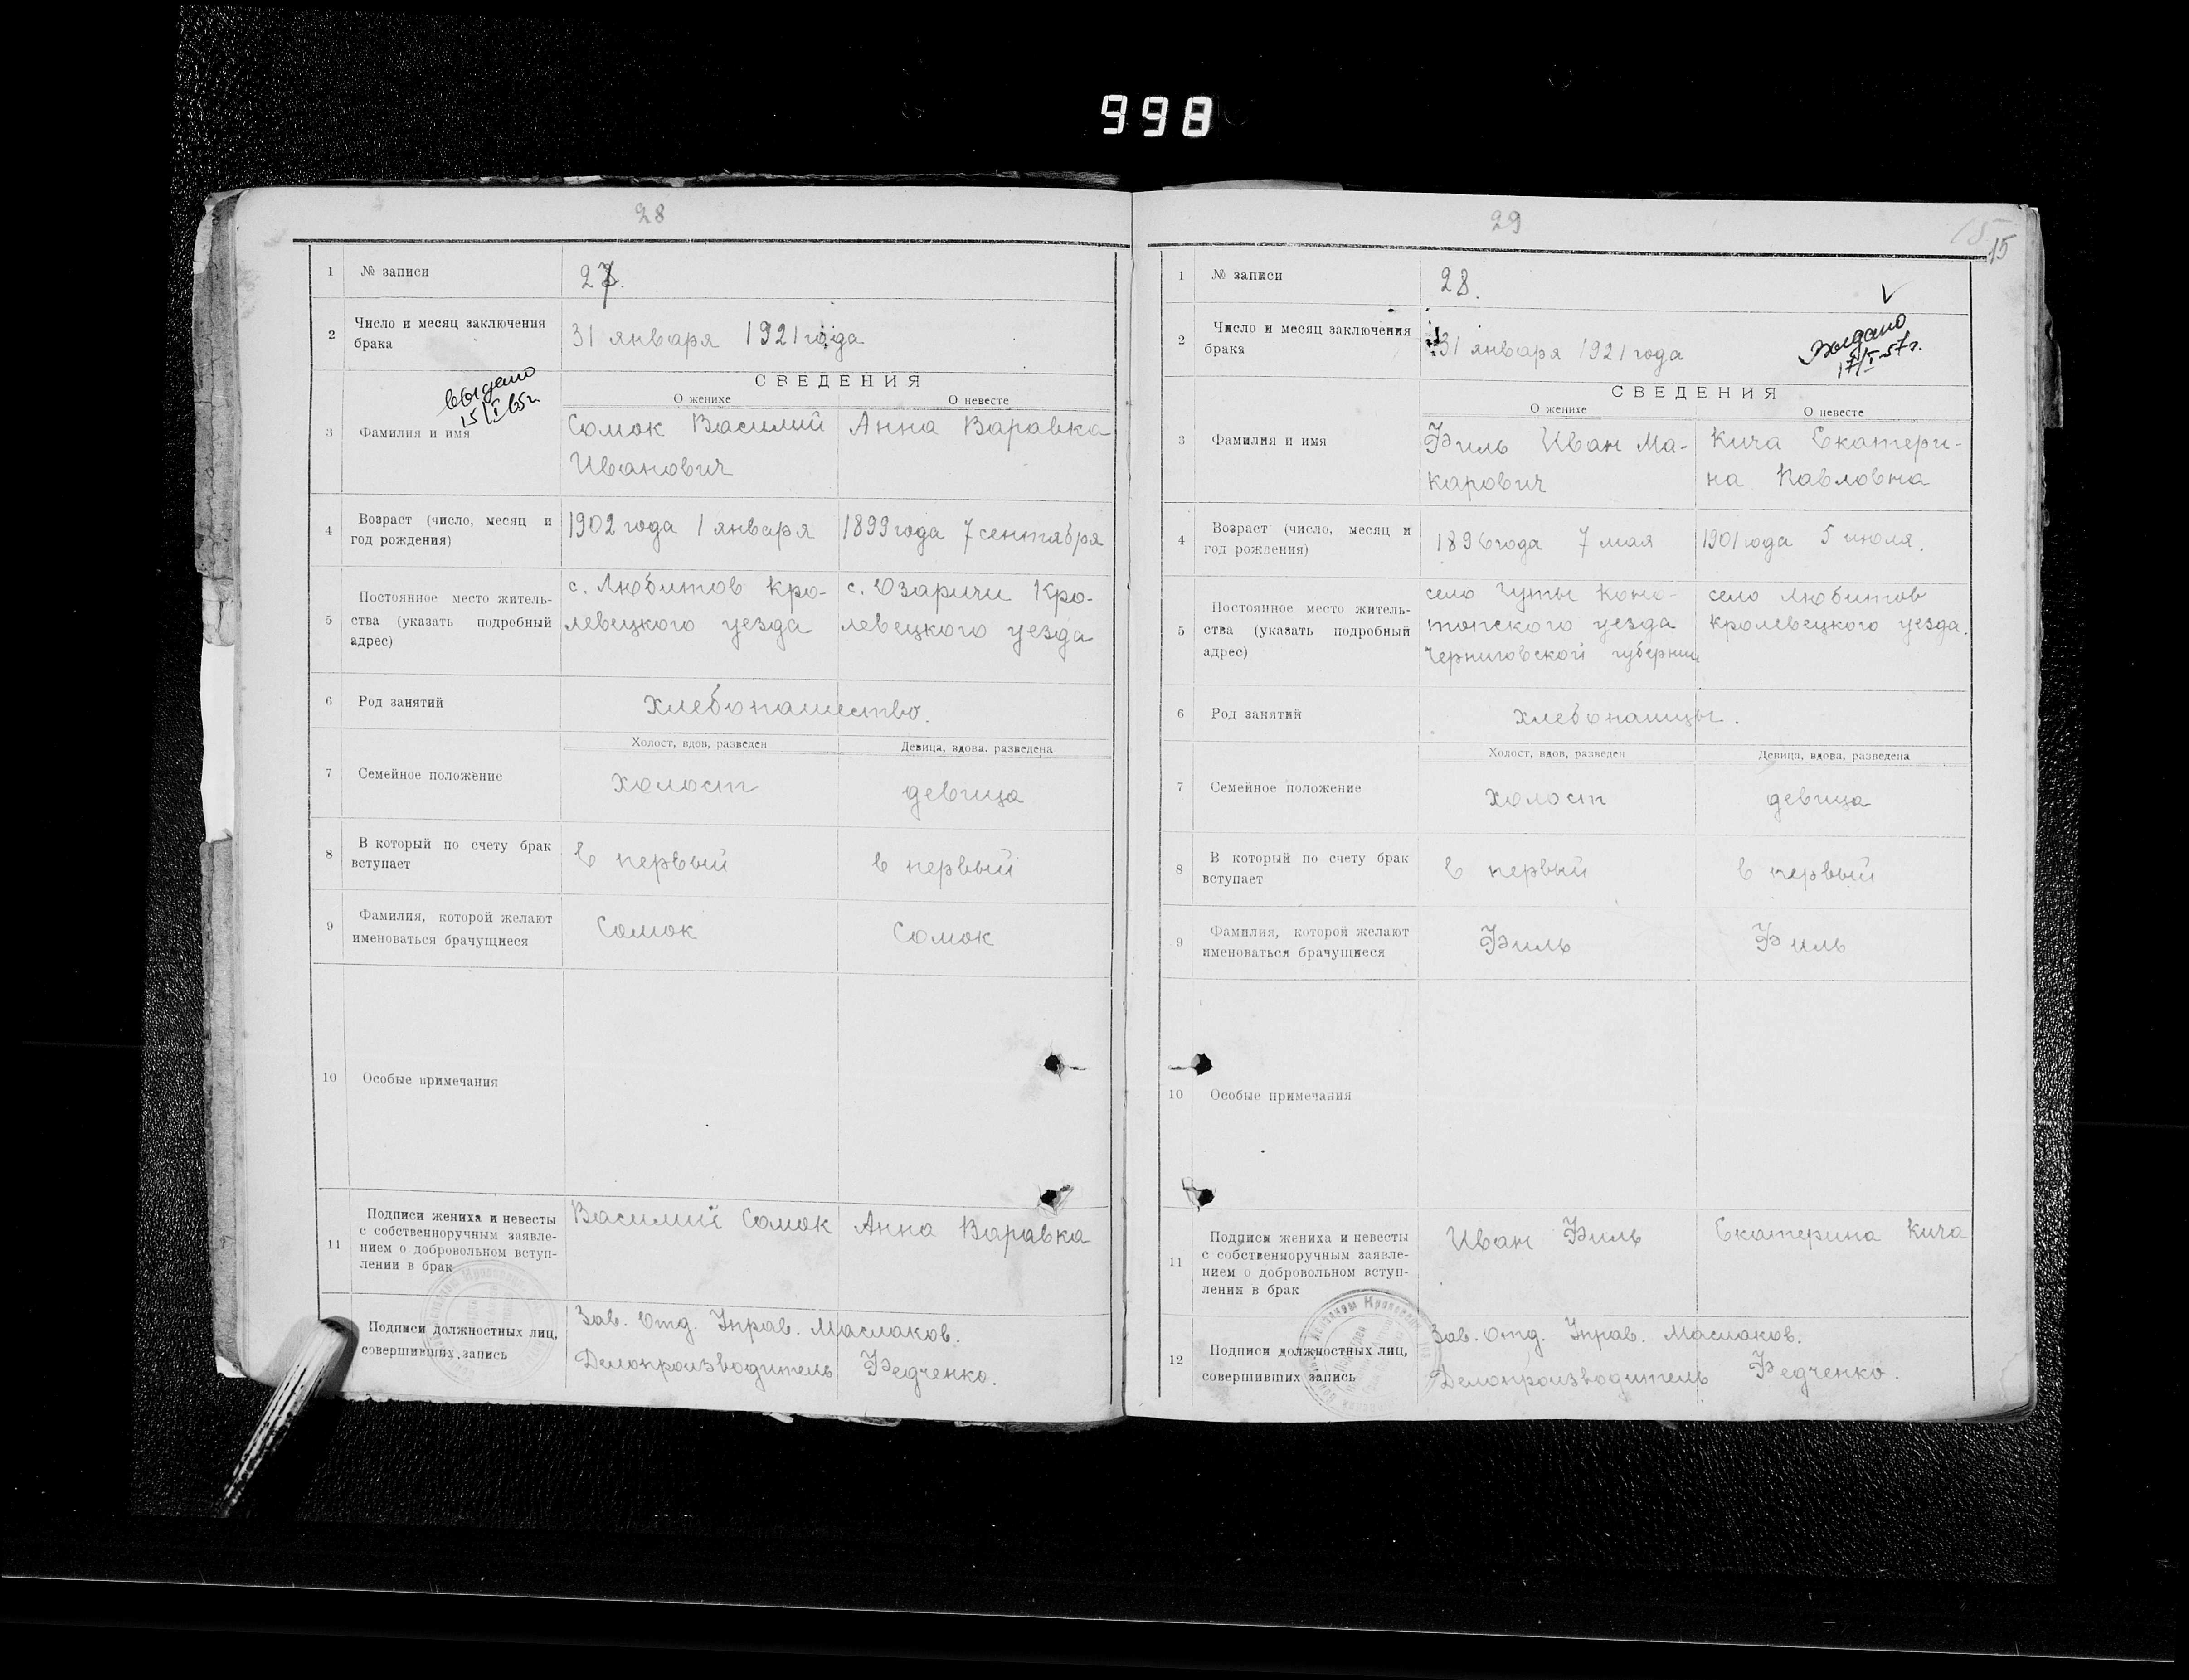 998
28
1 № записи 27.
2 Число и месяц заключения
брака
31 января 1921 года
выдано
15/I 65г.
СВЕДЕНИЯ
О женихе О невесте
3 Фамилия и имя
Сомок Василий Анна Варавка
Иванович
4 Возраст (число, месяц и
год рождения)
1902 года 1 января 1899 года 7 сентября
5 Постоянное место житель-
ства (указать подробный
адрес)
с. Любитов Кро- с. Озаричи Кро-
левецкого уезда левецкого уезда
6 Род занятий хлебопашество.
Холост, вдов, разведен Девица, вдова, разведена
7 Семейное положение холост девица
8 В который по счету брак
вступает
в первый в первый
9 Фамилия, которой желают
именоваться брачущиеся
Сомок Сомок
10 Особые примечания
11 Подписи жениха и невесты
с собственноручным заявле-
нием о добровольном вступ-
лении в брак
Василий Сомок Анна Варавка
Подписи должностных лиц,
совершивших запись
Зав. Отд. Управ. Маслаков.
Делопроизводитель Федченко.
29
15
15
1 № записи 28.
2 Число и месяц заключения
брака
31 января 1921 года
Выдано
17/I-57г.
СВЕДЕНИЯ
О женихе О невесте
3 Фамилия и имя
Филь Иван Ма- Кича Екатери-
карович на Павловна
4 Возраст (число, месяц и
год рождения)
1896 года 7 мая 1901 года 5 июля.
5 Постоянное место житель-
ства (указать подробный
адрес)
село Гуты Коно- село Любитов
топского уезда Кролевецкого уезда.
Черниговской губернии
6 Род занятий хлебопашцы.
Холост, вдов, разведен Девица, вдова, разведена
7 Семейное положение холост девица
8 В который по счету брак
вступает
в первый в первый
9 Фамилия, которой желают
именоваться брачущиеся
Филь Филь
10 Особые примечания
11 Подписи жениха и невесты
с собственноручным заявле-
нием о добровольном вступ-
лении в брак
Иван Филь Екатерина Кича
12 Подписи должностных лиц,
совершивших запись
Зав. Отд. Управ. Маслаков.
Делопроизводитель Федченко.